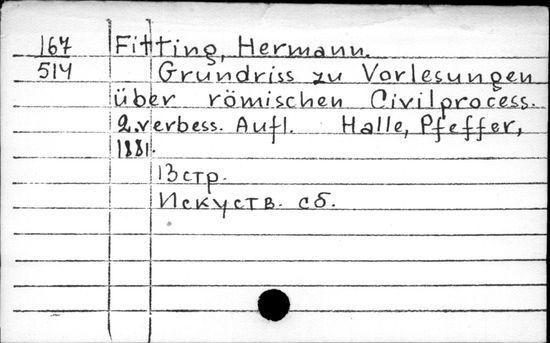 167 Fitting, Hermann.
514 Grundriss zu Vorlesungen
über römischen Civilprocess.
2. verbess. Aufl. Halle, Pfeffer,
1881.
13 стр.
Искуств. сб.